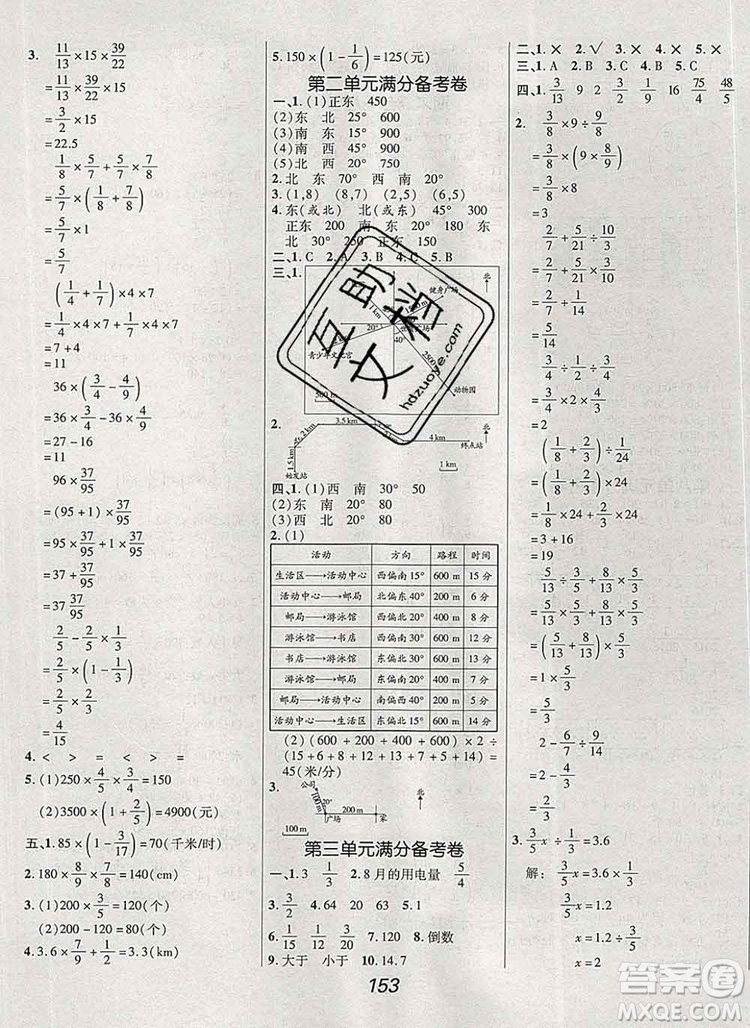 3. 11/13 × 15 × 39/22
= 11/13 × 39/22 × 15
= 3/2 × 15
= 22.5
1/8 × 5/7 + 5/7 × 7/8
= 5/7 × (1/8 + 7/8)
= 5/7 × 1
= 5/7
(1/4 + 1/7) × 4 × 7
= 1/4 × 4 × 7 + 1/7 × 4 × 7
= 7 + 4
= 11
36 × (3/4 − 4/9)
= 36 × 3/4 − 36 × 4/9
= 27 − 16
= 11
96 × 37/95
= (95 + 1) × 37/95
= 95 × 37/95 + 1 × 37/95
= 37 + 37/95
= 37 37/95
2/5 − 2/5 × 1/3
= 2/5 × (1 − 1/3)
= 2/5 × 2/3
= 4/15
4. < = < > = >
5. (1) 250 × 3/4 × 4/5 = 150
(2) 3500 × (1 + 2/5) = 4900(元)
五、1. 85 × (1 − 3/17) = 70(千米/时)
2. 180 × 8/9 × 7/8 = 140(cm)
3. (1) 200 × 3/5 = 120(个)
(2) 200 − 120 = 80(个)
4. 3.6 × 7/9 + 1/2 = 3.3(km)
5. 150 × (1 − 1/6) = 125(元)
第二单元满分备考卷
一、1. (1) 正东 450
(2) 东 北 25° 600
(3) 南 东 20° 900
(4) 南 西 45° 900
(5) 北 西 20° 750
2. 北 东 70° 西 南 20°
3. (1,8) (8,7) (2,6) (6,5)
4. 东(或北) 北(或东) 45° 300
正东 200 南 东 20° 180 东
北 30° 250 正东 150
二、1. C 2. A 3. B 4. C 5. B
三、1.
北
健身广场
20°
40°
青少年文化宫
动物园
500 m
2.
3.5 km
2 km
北
4 km
终点站
1.5 km
始发站
四、1. (1) 西 南 30° 50
(2) 西 南 20° 80
(3) 西 北 20° 80
2. (1)
活动 方向 路程 时间
生活区→活动中心 西偏南15° 600 m 15分
活动中心→邮局 北偏东40° 200 m 6分
邮局→游泳馆 东偏北20° 400 m 8分
游泳馆→书店 西偏南30° 600 m 12分
书店→游泳馆 东偏北30° 600 m 13分
游泳馆→邮局 西偏南20° 400 m 7分
邮局→活动中心 南偏西40° 200 m 5分
活动中心→生活区 东偏北15° 600 m 14分
(2) (600 + 200 + 400 + 600) × 2 ÷
(15 + 6 + 8 + 12 + 13 + 7 + 5 + 14) =
45(米/分)
3.
公司
20°
100 m
200 m
广场 家
100 m
第三单元满分备考卷
一、1. 3 1/3 2. 8月的用电量 5/4
3. 3/2 4. 64 20 5. 1
6. 1/15 1/12 1/20 7. 120 8. 倒数
9. 大于 小于 10. 14.7
二、1. × 2. √ 3. × 4. × 5. ×
三、1. A 2. B 3. C 4. B 5. C
2. 3/8 × 9 ÷ 9/8
= 3/8 × (9 × 8/9)
= 3/8 × 8
= 3
2/7 × 5/21 ÷ 10/21
(1/8 + 2/3) ÷ 1/24
= (1/8 + 2/3) × 24
= 1/8 × 24 + 2/3 × 24
= 3 + 16
= 19
5/13 ÷ 3/5 + 8/13 ÷ 3/5
= 5/13 × 5/3 + 8/13 × 5/3
= (5/13 + 8/13) × 5/3
= 1 × 5/3
= 5/3
2 − 9/7 ÷ 9/14
3. 3/5 x ÷ 1/3 = 3.6
解： 3/5 x = 3.6 × 1/3
3/5 x = 1.2
x = 1.2 ÷ 3/5
x = 2
153
互助文档
hdzuoye.com
答案圈
MXQE.COM